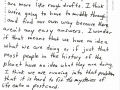 are more like rough drafts. I think
we're going to have to muddle through
and find our own way because there
aren't any easy answers. I wonder
if that means that we have no idea
what we are doing or if just that
most people in the history of the
planet have no idea what they are doing
I think we are running into that problem
that it is hard to fix the mysteries of
life onto a postcard.